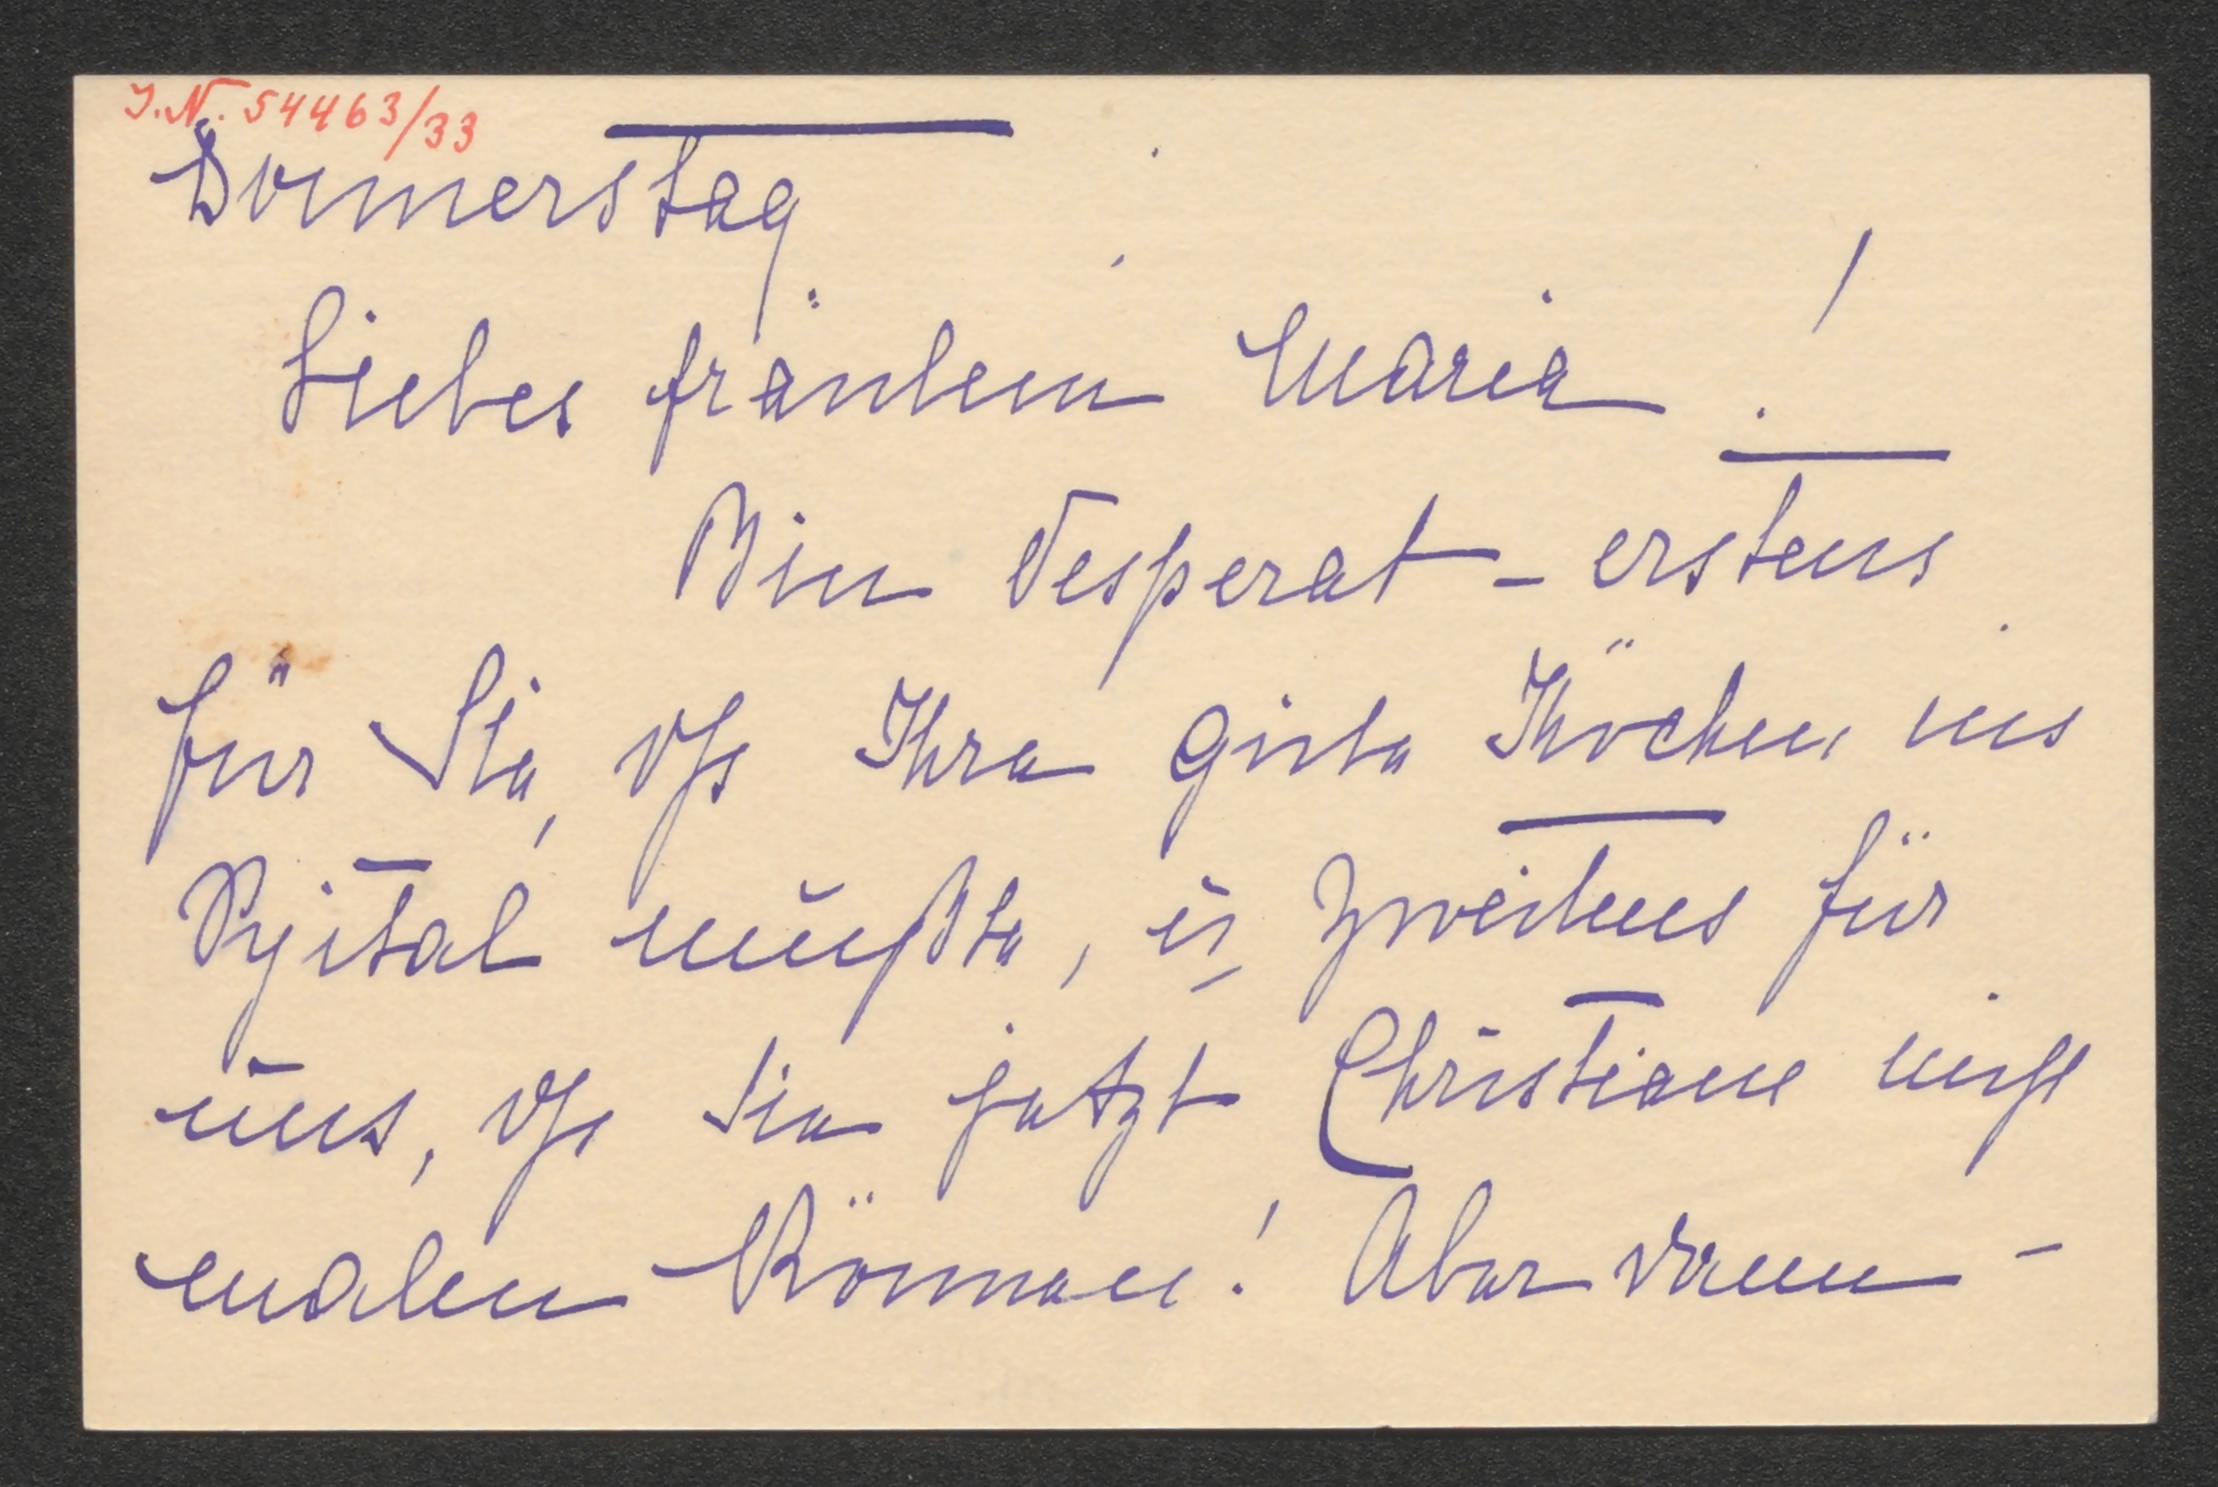 I.N. 54463/33
Donnerstag
Liebes Fräulein Maria!
Bin desperat – erstens
für Sie, dß Ihre gute Köchin ins
Spital mußte, u. zweitens für
uns, dß Sie jetzt Christiane nicht
malen können! Aber dann –